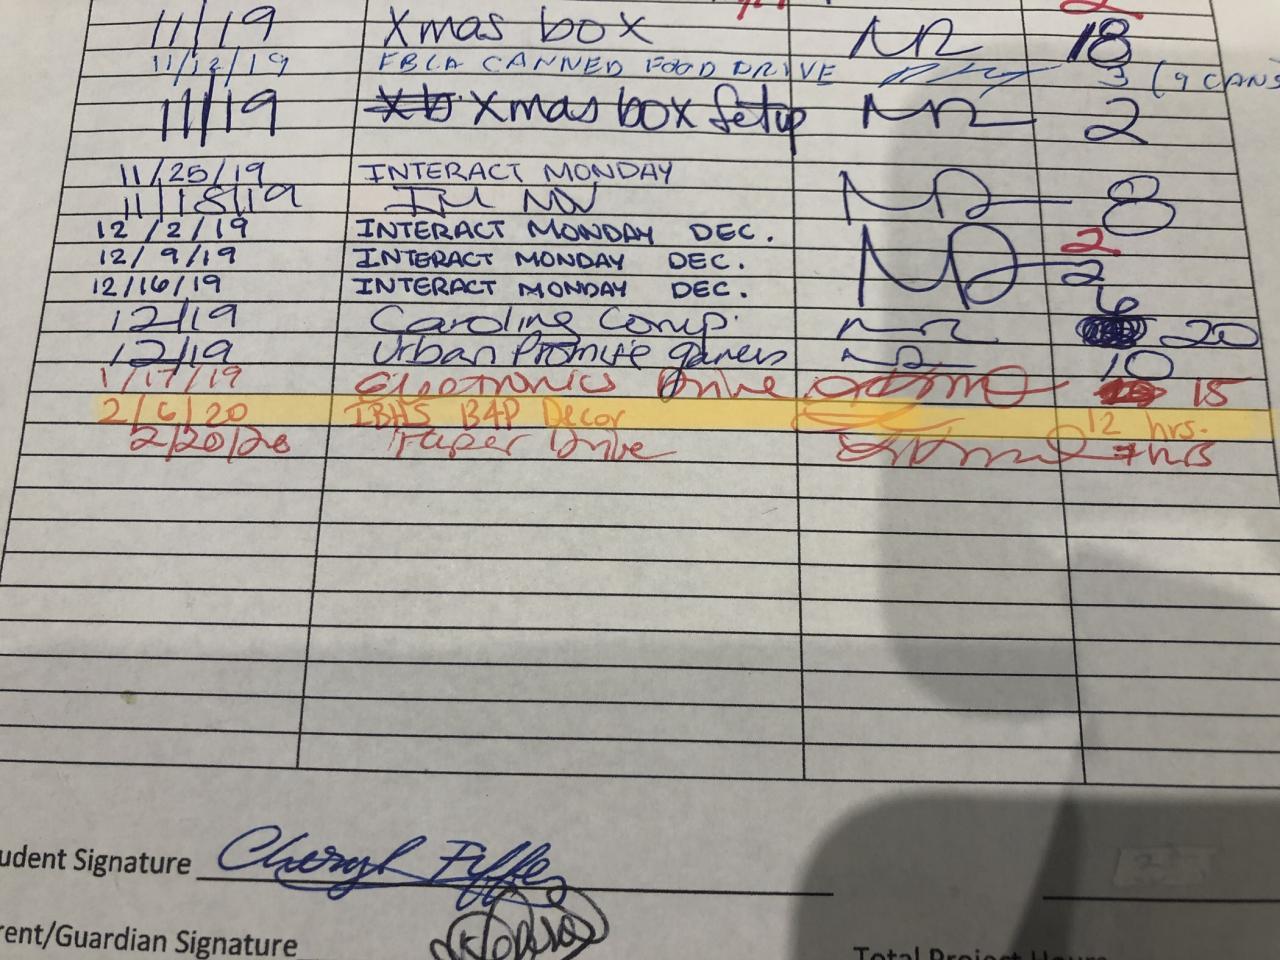 11/19 Xmas box NR 18
11/12/19 FBLA CANNED FOOD DRIVE 3 (9 CANS
11/19 Xmas box Setup NR 2
11/25/19 INTERACT MONDAY
11/18/19 IM NOV NR 8
12/2/19 INTERACT MONDAY DEC. 2
12/9/19 INTERACT MONDAY DEC. NR 2
12/16/19 INTERACT MONDAY DEC. 6
12/19 Caroling Comp. NR 20
12/19 Urban Promise NR 10
1/17/19 Electronics Drive 15
2/6/20 IBHS B4P Decor 12 hrs.
2/20/20 Paper Drive 7 hrs
udent Signature Cheryl
rent/Guardian Signature
Total Project Hours